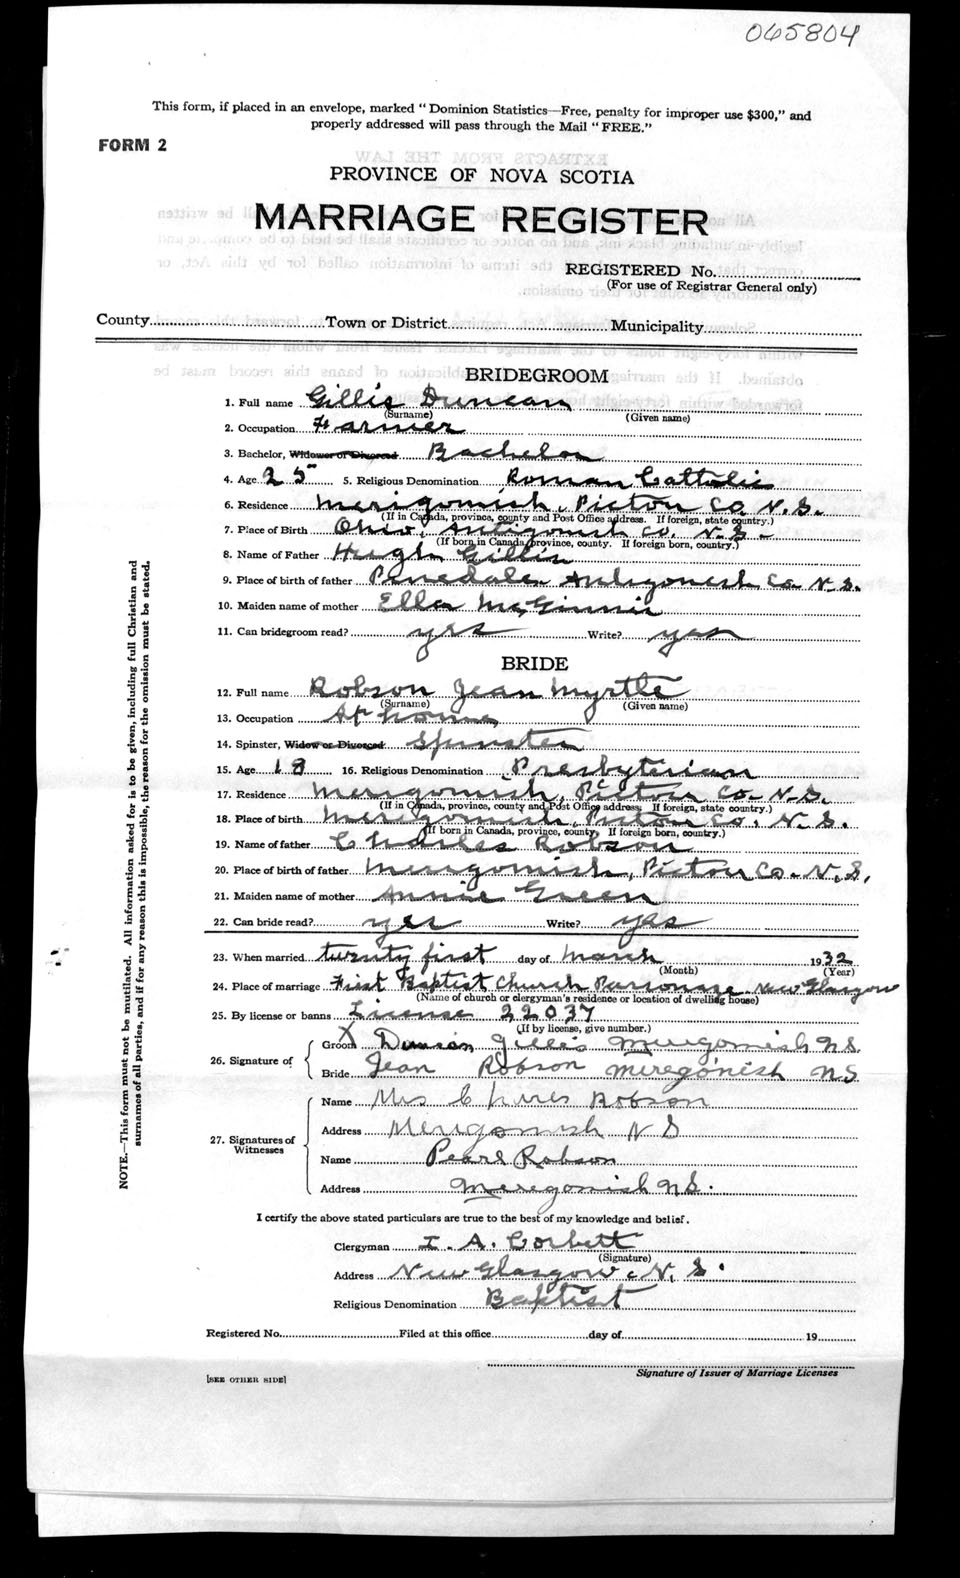 065804
This form, if placed in an envelope, marked "Dominion Statistics—Free, penalty for improper use $300," and
properly addressed will pass through the Mail "FREE."
FORM 2
PROVINCE OF NOVA SCOTIA
MARRIAGE REGISTER
REGISTERED No.
(For use of Registrar General only)
County Town or District Municipality
BRIDEGROOM
1. Full name Gillis Duncan
(Surname) (Given name)
2. Occupation Farmer
3. Bachelor, Widower or Divorced Bachelor
4. Age 25 5. Religious Denomination Roman Catholic
6. Residence Merigomish, Pictou Co N.S.
(If in Canada, province, county and Post Office address. If foreign, state country.)
7. Place of Birth Ohio, Antigonish Co. N.S.
(If born in Canada, province, county. If foreign born, country.)
8. Name of Father Hugh Gillis
9. Place of birth of father Pinedale Antigonish Co N.S.
10. Maiden name of mother Ella McGinnis
11. Can bridegroom read? yes Write? yes
BRIDE
12. Full name Robson Jean Myrtle
(Surname) (Given name)
13. Occupation At home
14. Spinster, Widow or Divorced Spinster
15. Age 18 16. Religious Denomination Presbyterian
17. Residence Merigomish, Pictou Co. N.S.
(If in Canada, province, county and Post Office address. If foreign, state country.)
18. Place of birth Merigomish, Pictou Co. N.S.
(If born in Canada, province, county. If foreign born, country.)
19. Name of father Charles Robson
20. Place of birth of father Merigomish, Pictou Co. N.S.
21. Maiden name of mother Annie Green
22. Can bride read? yes Write? yes
23. When married twenty first day of March 1932
(Month) (Year)
24. Place of marriage First Baptist Church Parsonage New Glasgow
(Name of church or clergyman's residence or location of dwelling house)
25. By license or banns License 22037
(If by license, give number.)
26. Signature of
Groom X Duncan Gillis Merigomish N.S.
Bride Jean Robson Meregonish NS
27. Signatures of
Witnesses
Name Mrs Robson
Address Merigomish N S
Name Pearl Robson
Address Meregonish N.S.
I certify the above stated particulars are true to the best of my knowledge and belief.
Clergyman I. A. Corbett
(Signature)
Address New Glasgow N.S.
Religious Denomination Baptist
Registered No. Filed at this office day of 19
Signature of Issuer of Marriage Licenses
[SEE OTHER SIDE]
NOTE.—This form must not be mutilated. All information asked for is to be given, including full Christian and
surnames of all parties, and if for any reason this is impossible, the reason for the omission must be stated.